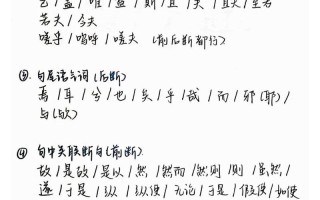 盖 / 唯 / 盍 / 则 / 且 / 夫 / 且夫 / 至若
若夫 / 今夫
嗟乎 / 呜呼 / 嗟夫 (前后断都行)
③. 句尾语气词 (后断)
焉 / 耳 / 兮 / 也 / 矣 / 乎 / 哉 / 而 / 邪 (耶) /
与 (欤)
④ 句中关联断句 (前断)
故 / 是故 / 是以 / 然 / 然而 / 然则 / 则 / 虽然 /
遂 / 于是 / 纵 / 纵使 / 无论 / 于是 / 假使 / 如使